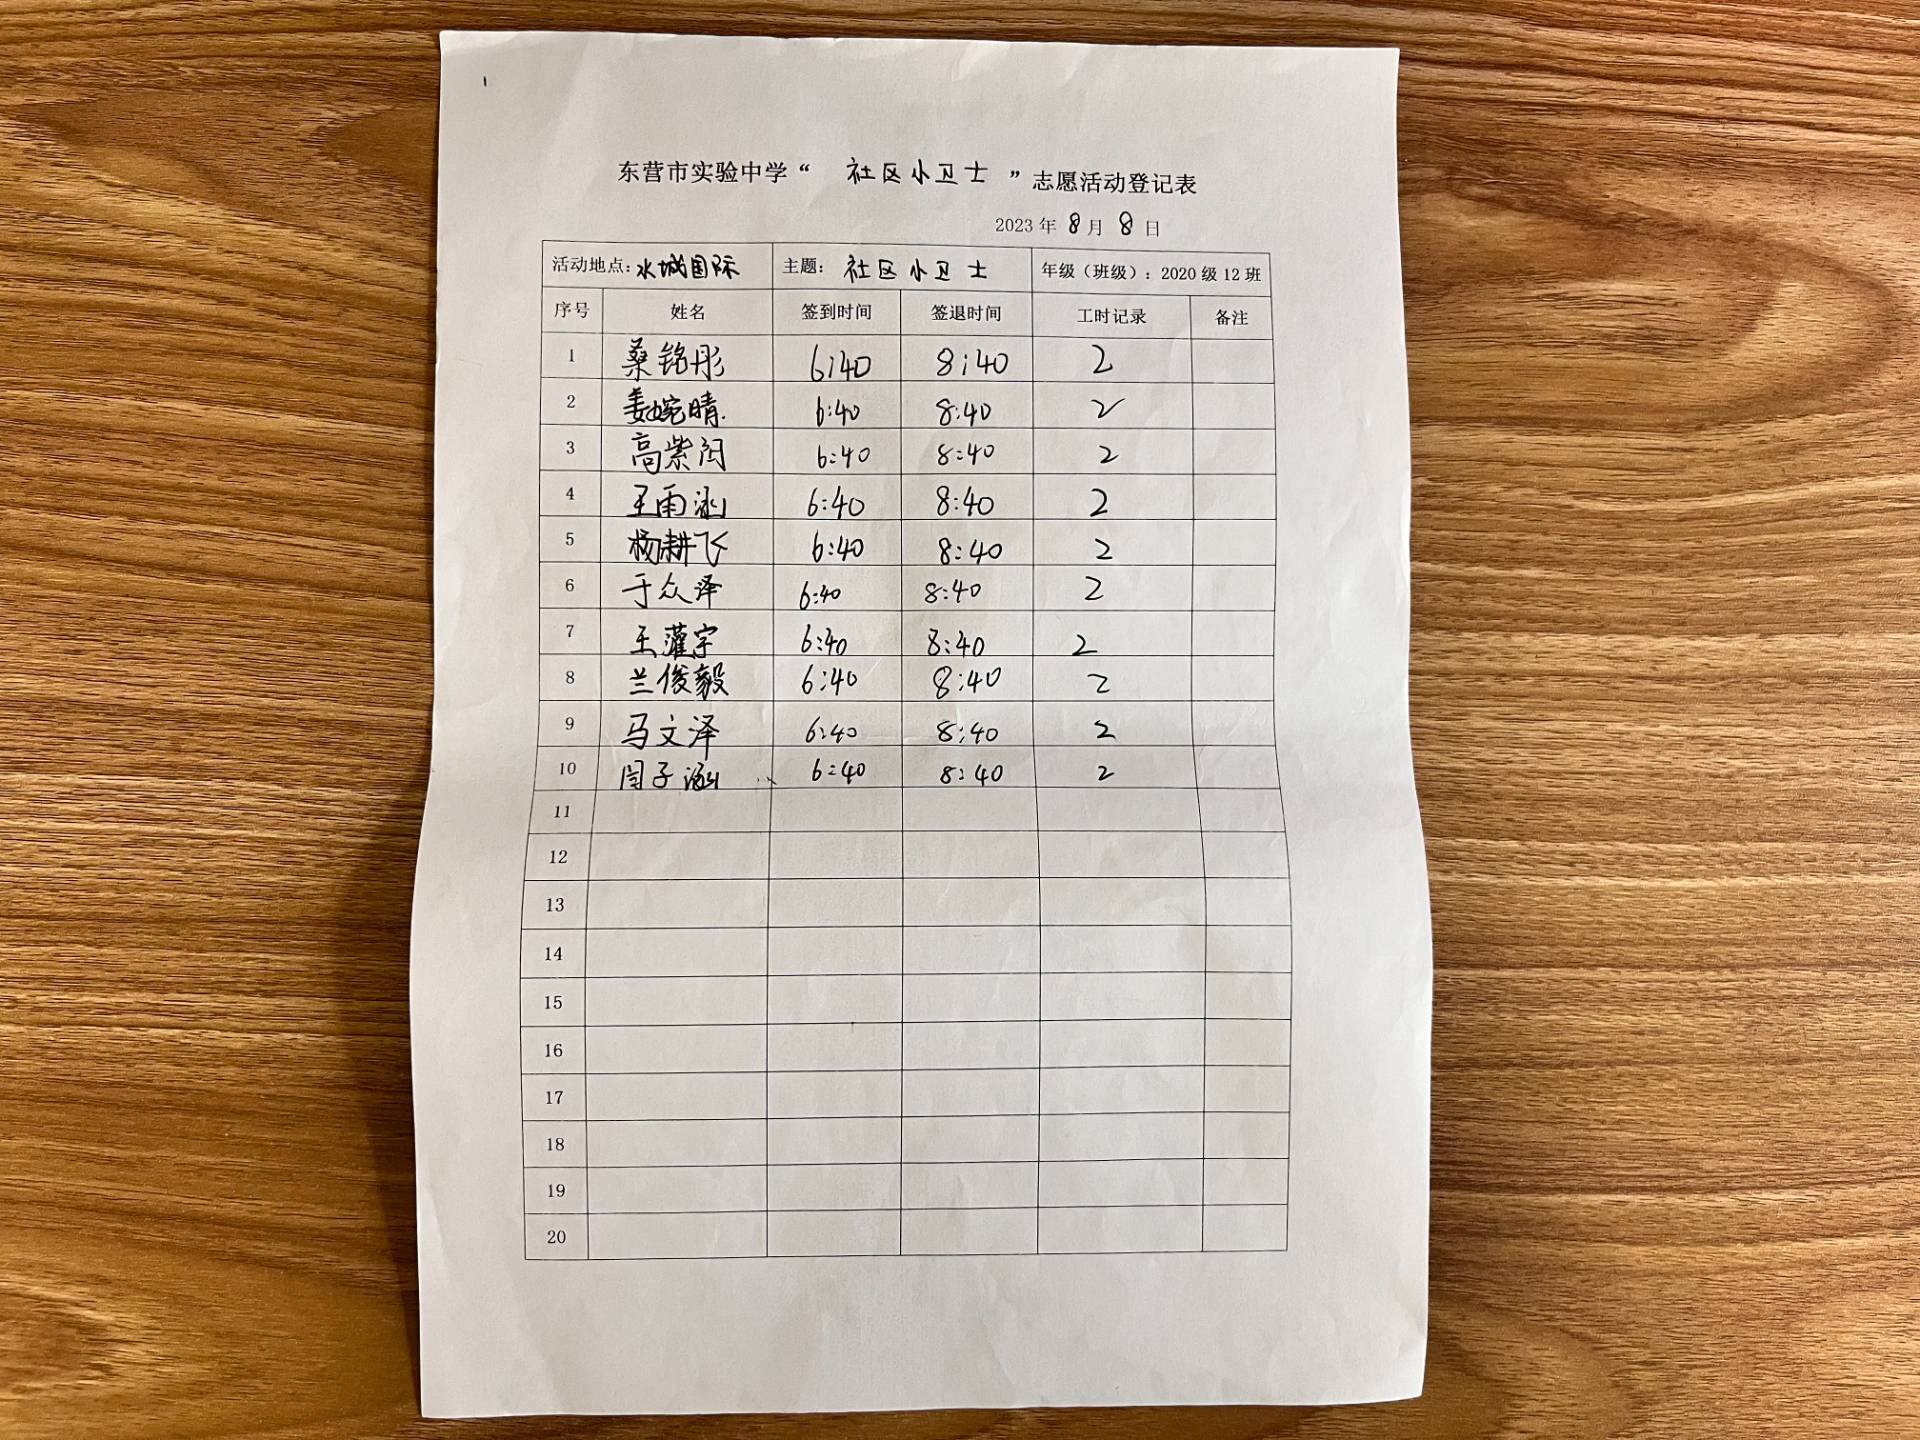 东营市实验中学“ 社区小卫士 ”志愿活动登记表
2023 年 8 月 8 日
活动地点:水城国际 主题: 社区小卫士 年级（班级）: 2020 级 12 班
序号 姓名 签到时间 签退时间 工时记录 备注
1 桑铭彤 6:40 8:40 2
2 姜婉晴 6:40 8:40 2
3 高紫 6:40 8:40 2
4 王雨涵 6:40 8:40 2
5 杨耕飞 6:40 8:40 2
6 于众泽 6:40 8:40 2
7 王灌宇 6:40 8:40 2
8 兰俊毅 6:40 8:40 2
9 马文泽 6:40 8:40 2
10 闫子涵 6:40 8:40 2
11
12
13
14
15
16
17
18
19
20